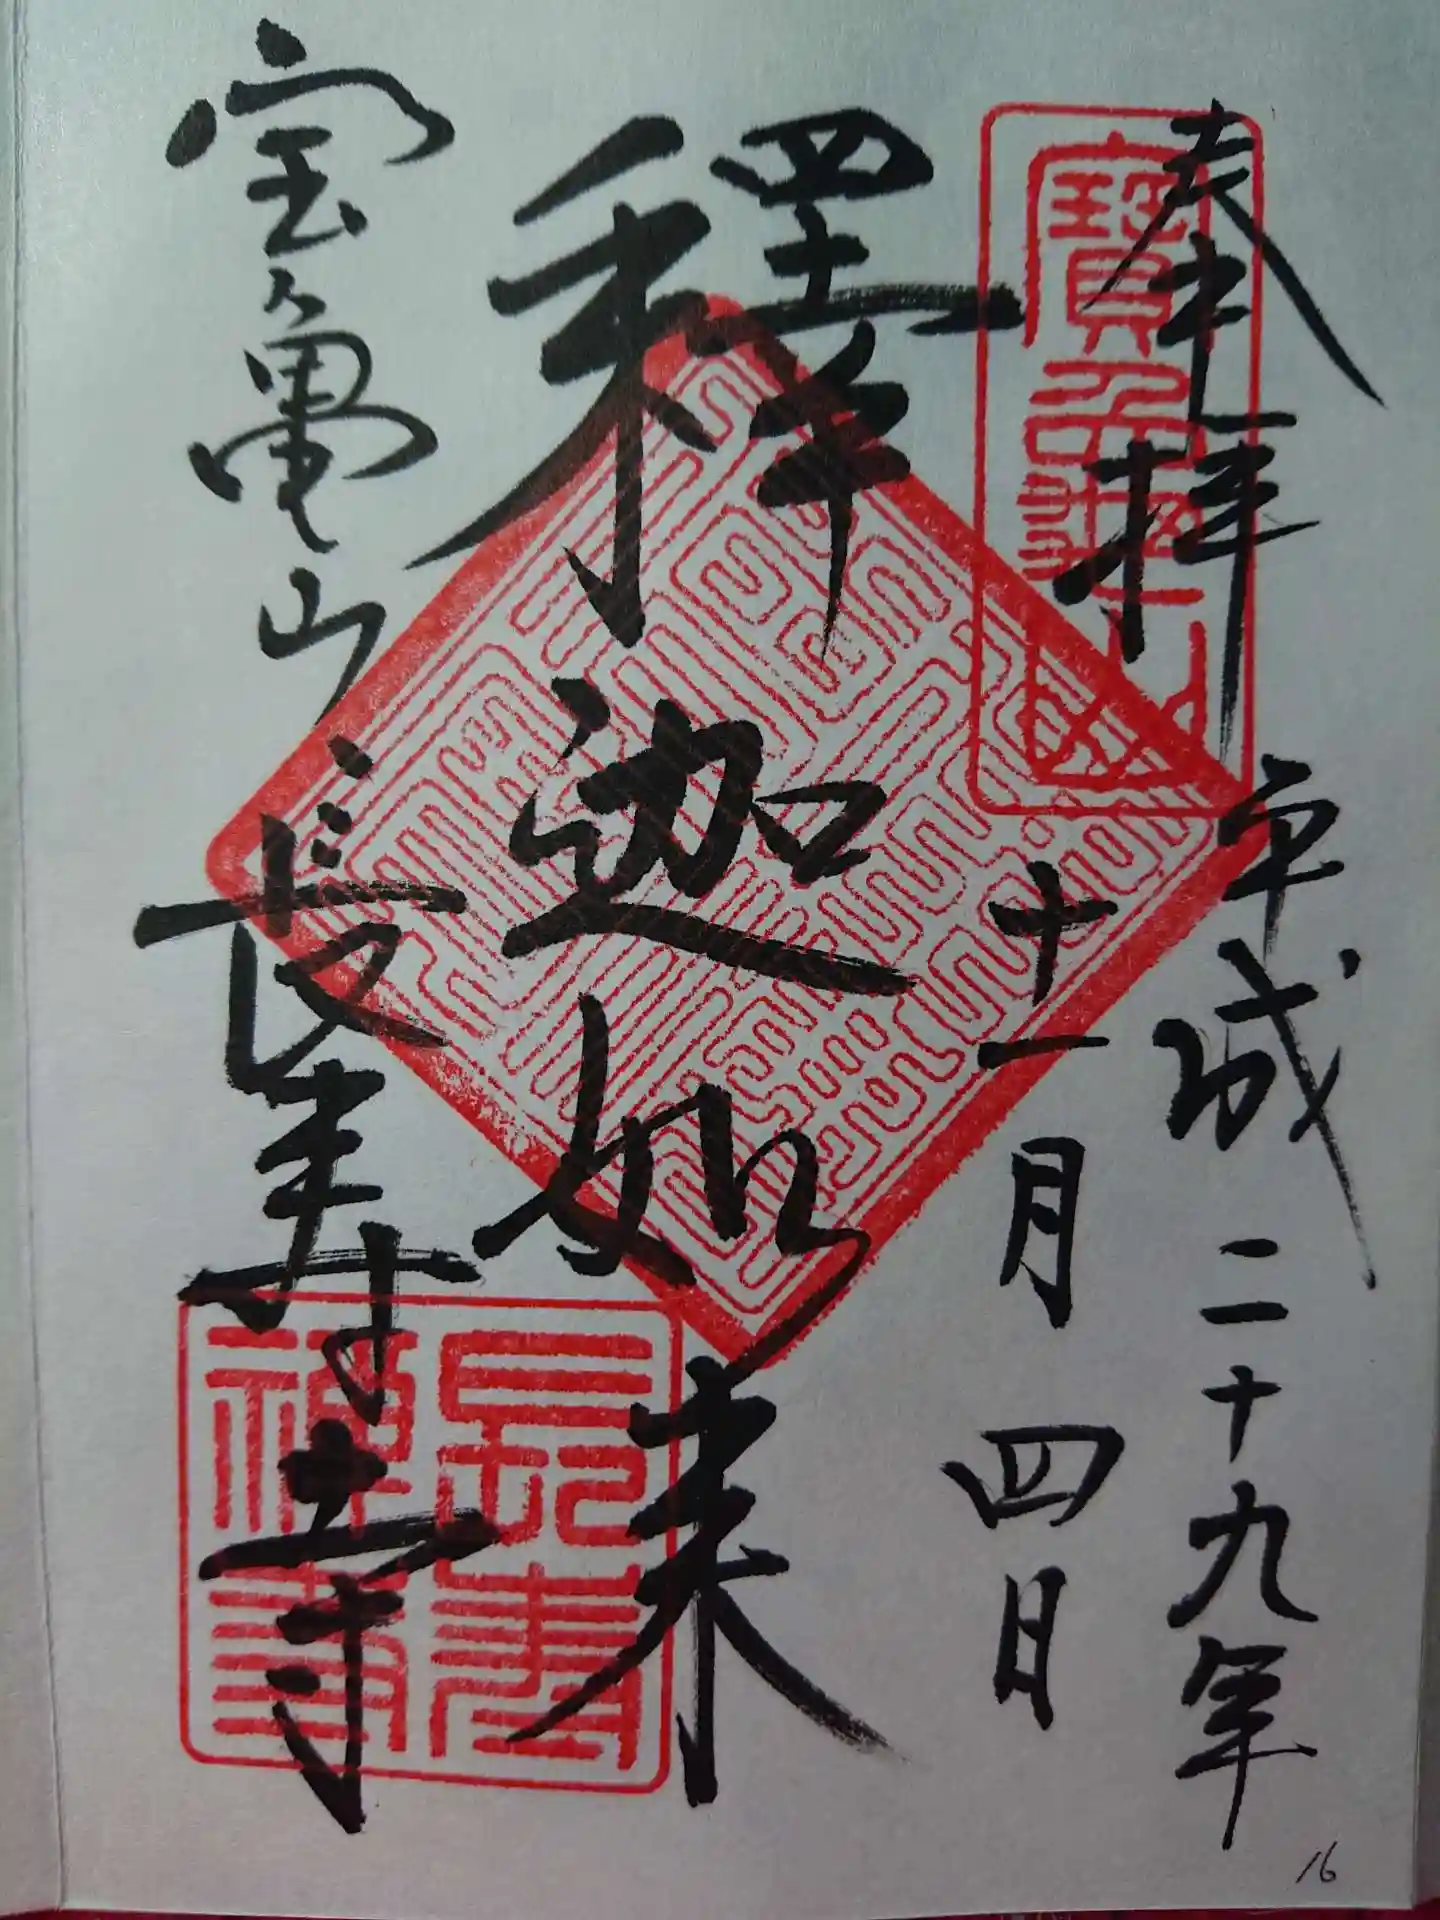 奉拝
平成二十九年
十一月四日
釋迦如来
宝亀山
長寿寺
寶亀山
長寿禅寺
16